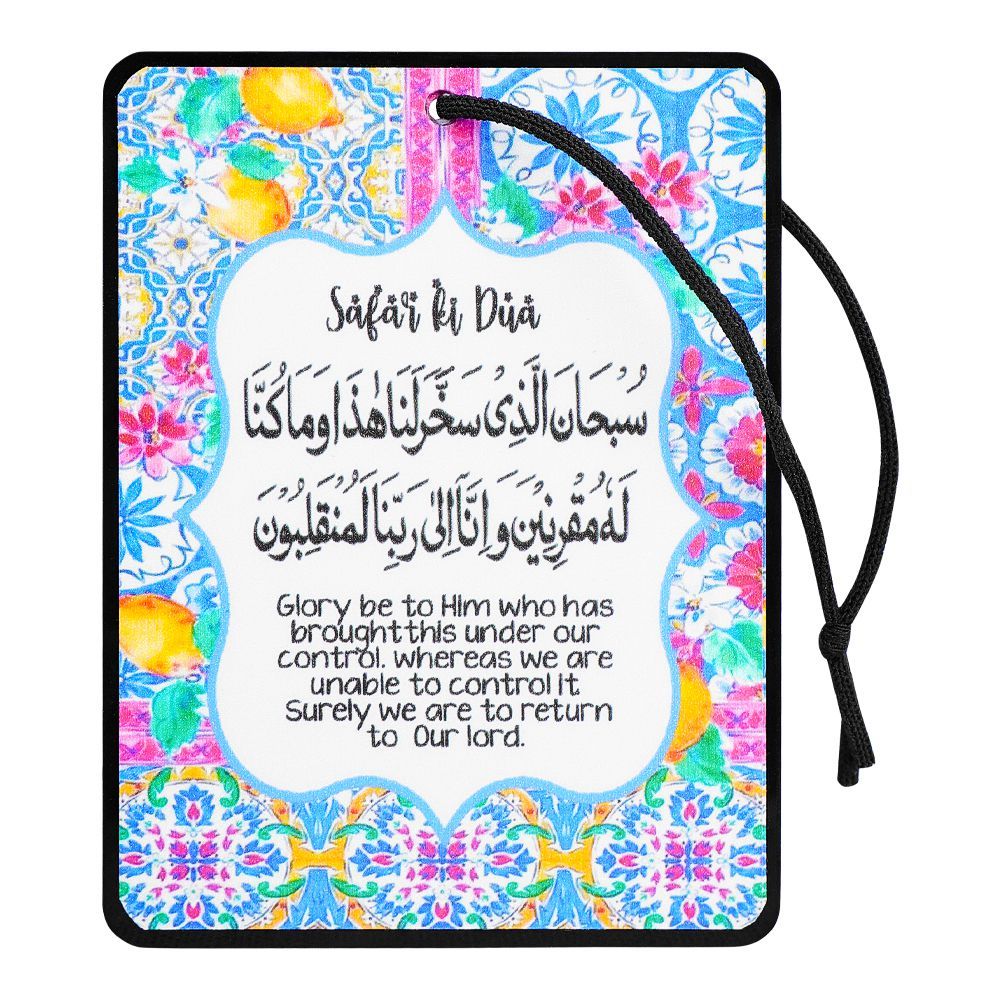 Safar ki Dua
سُبْحَانَ الَّذِیْ سَخَّرَ لَنَا هٰذَا وَمَا كُنَّا
لَهٗ مُقْرِنِیْنَ وَ اِنَّاۤ اِلٰی رَبِّنَا لَمُنْقَلِبُوْنَ
Glory be to Him who has
broughtthis under our
control. whereas we are
unable to control it
Surely we are to return
to Our lord.